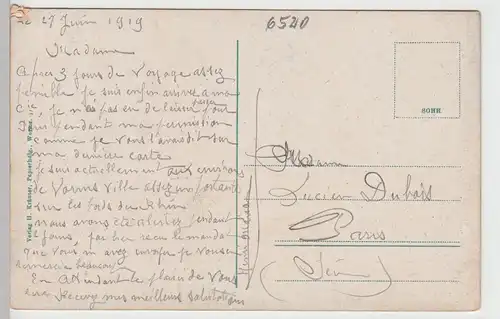 le 27 Juin 1919
6520
Madame
Apres 3 jours de Voyage assez
penible je suis enfin arrivé a ma
Cie, je n'ai pas eu de
pendant ma permission
comme je vous l'avais dit sur
ma derniere carte
je suis actuellement aux environs
de Worms Ville assez importante
sur les bords du Rhin
nous avons été pendant
jours, j'ai bien recu le mandat
que Vous m'avez envoyer je Vous en
remercie beaucoup
En Attendant le plaisir de Vous
recevez mes meilleurs salutations
Verlag H. Kräuter, Papierhdlg., Worms.
SOHR
Madame
Lucien Dubois
Paris
(Seine)